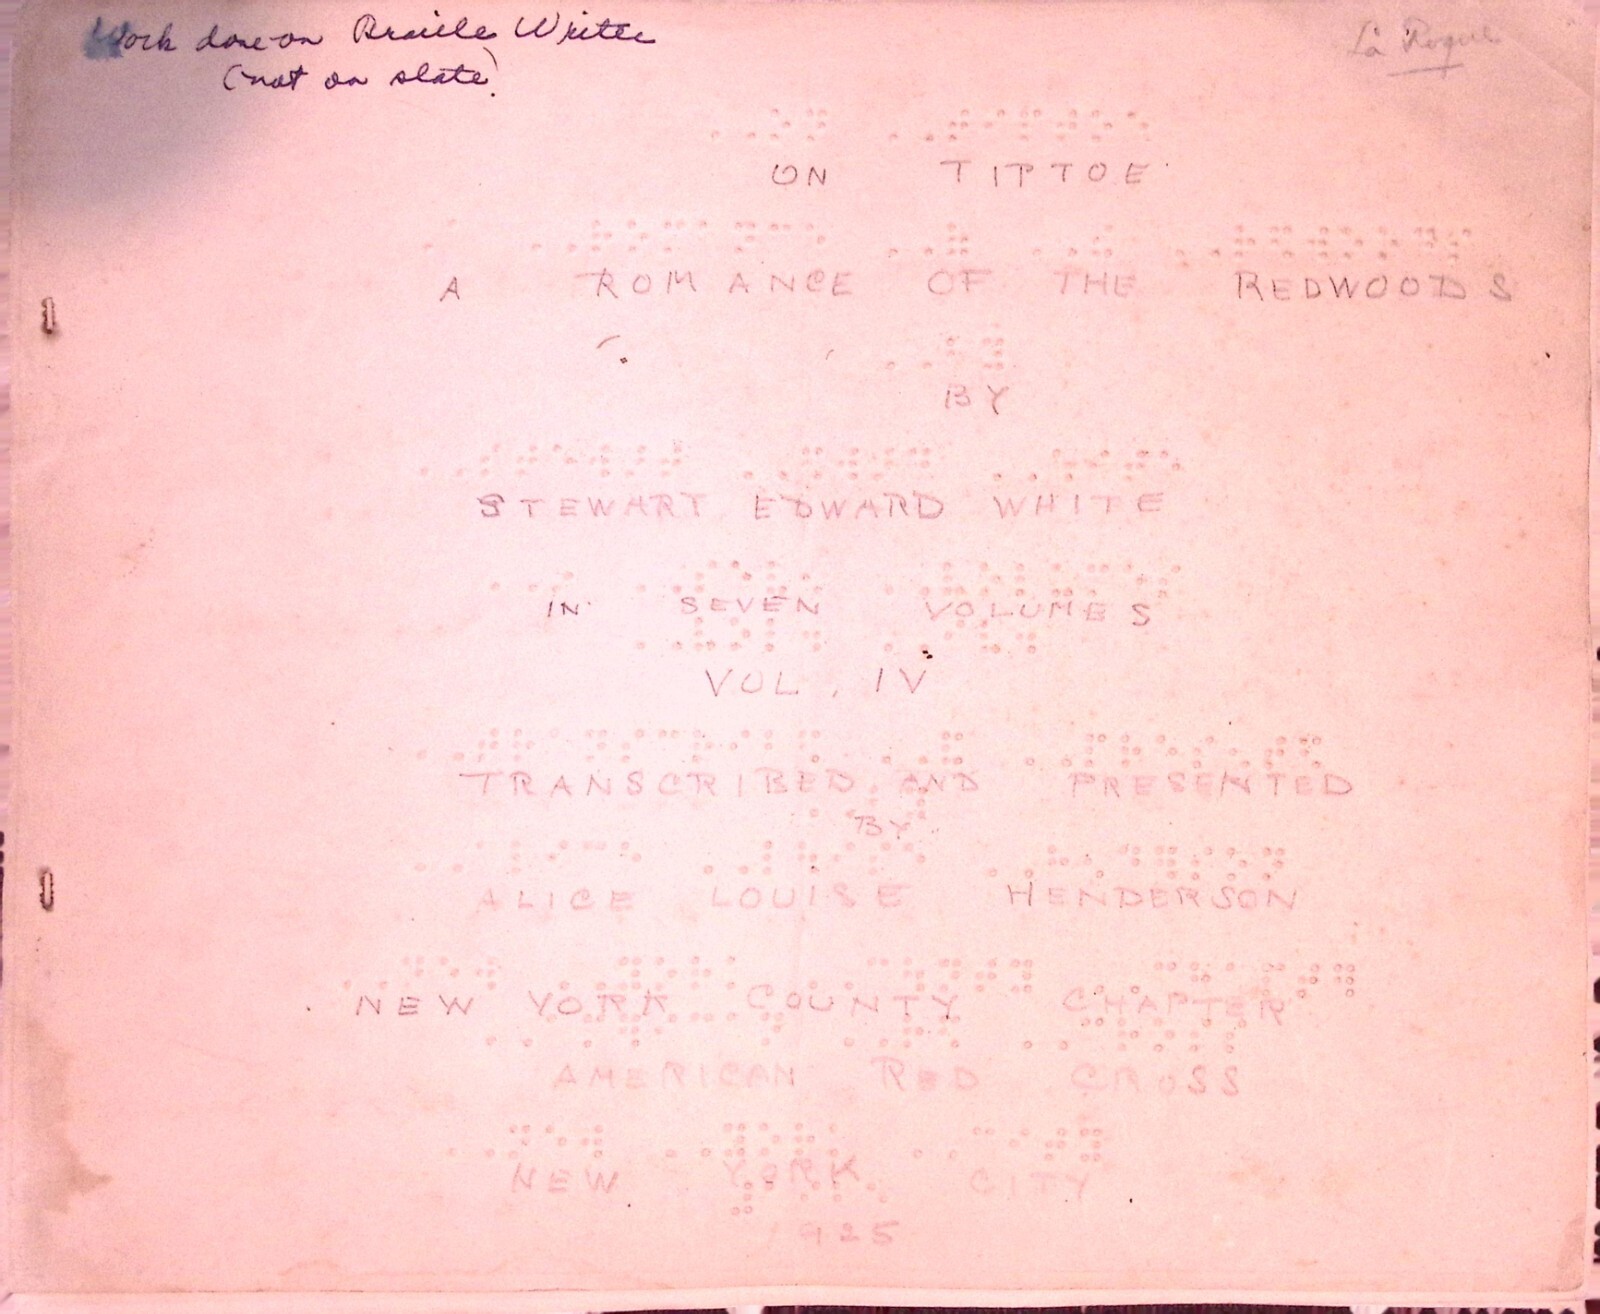 Work done on Braille Writer
(not on slate)
ON TIPTOE
A ROMANCE OF THE REDWOODS
BY
STEWART EDWARD WHITE
IN SEVEN VOLUMES
VOL. IV
TRANSCRIBED AND PRESENTED
BY
ALICE LOUISE HENDERSON
NEW YORK COUNTY CHAPTER
AMERICAN RED CROSS
NEW YORK CITY
1925